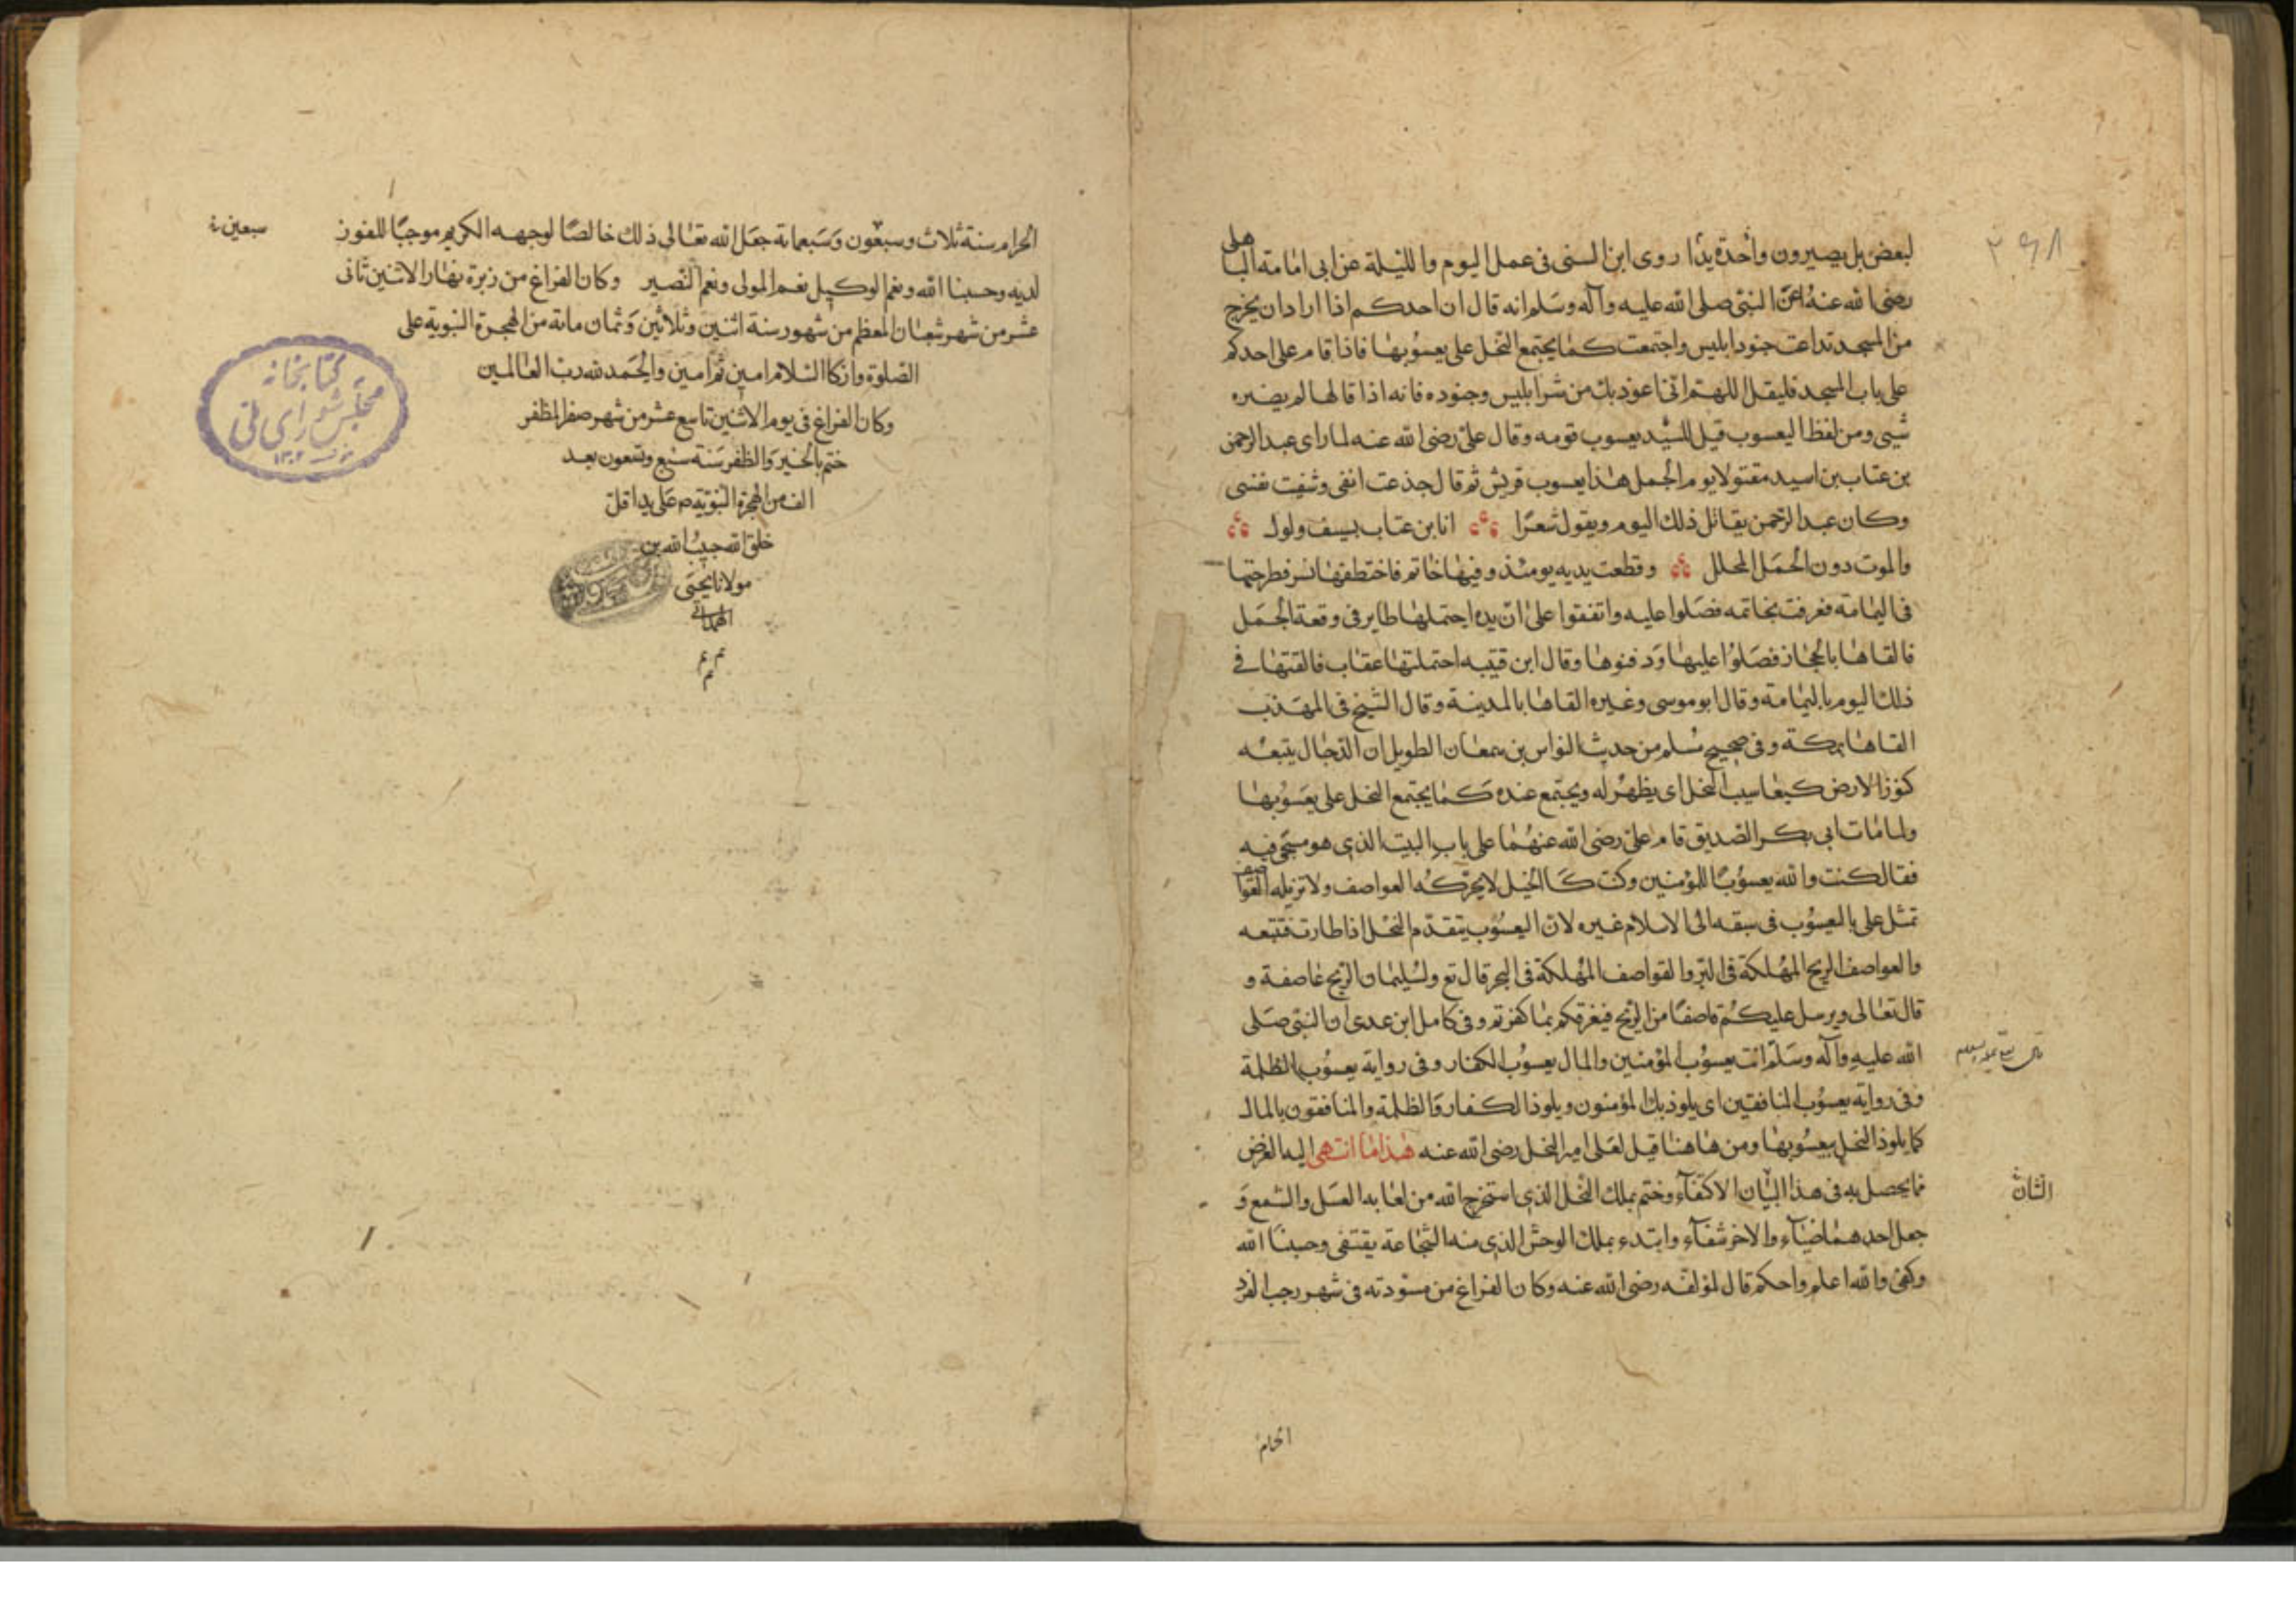 ٢٩٨
لبعض بل يصيرون واحدة يدًا روى ابن السنى فى عمل اليوم والليلة عن ابى امامة الباهلى
رضى الله عنه عن النبى صلى الله عليه وآله وسلم انه قال ان احدكم اذا اراد ان يخرج
من المسجد تداعت جنود ابليس واجتمعت كما يجتمع النحل على يعسوبها فاذا قام على احدكم
على باب المسجد فليقل اللهم انى اعوذ بك من شر ابليس وجنوده فانه اذا قالها لم يضره
شيى ومن لفظ اليعسوب قيل للسيد يعسوب قومه وقال على رضى الله عنه لما راى عبد الرحمن
بن عتاب بن اسيد مقتولا يوم الجمل هذا يعسوب قريش ثم قال جذعت انفى وشفيت نفسى
وكان عبد الرحمن يقاتل ذلك اليوم ويقول شعرًا انا بن عتاب بسيف ولول
والموت دون الجمل المجلل وقطعت يديه يومئذ وفيها خاتم فاختطفها نسر فطرحتها
فى اليمامة فعرفت بخاتمه فصلوا عليه واتفقوا على ان يده احتملها طاير فى وقعة الجمل
فالقاها بالحجاز فصلوا عليها ودفنوها وقال ابن قتيبه احتملتها عقاب فالقتها فى
ذلك اليوم باليمامة وقال ابو موسى وغيره القاها بالمدينة وقال الشيخ فى المهذب
القاها بمكة وفى صحيح مسلم من حديث النواس بن سمعان الطويل ان الدجال يتبعه
كنوز الارض كيعاسيب النحل اى يظهر له ويجتمع عنده كما يجتمع النحل على يعسوبها
ولما مات ابى بكر الصديق قام على رضى الله عنهما على باب البيت الذى هو مسجى فيه
فقال كنت والله يعسوبًا للمؤمنين وكنت كالجبل لا يحركه العواصف ولا تزيله القواصف
تمثل على باليعسوب فى سبقه الى الاسلام غيره لان اليعسوب يتقدم النحل اذا طارت فتتبعه
والعواصف الريح المهلكة فى البر والقواصف المهلكة فى البحر قال تع ولسليمان الريح عاصفة و
قال تعالى ويرسل عليكم قاصفًا من الريح فيغرقكم بما كفرتم وفى كامل ابن عدى ان النبى صلى
الله عليه وآله وسلم انت يعسوب المؤمنين والمال يعسوب الكفار وفى رواية يعسوب الظلمة
وفى رواية يعسوب المنافقين اى يلوذ بك المؤمنون ويلوذ الكفار والظلمة والمنافقون بالمال
كما يلوذ النحل بيعسوبها ومن هاهنا قيل لعلى امير النحل رضى الله عنه هذا ما انتهى اليه الغرض
مما يحصل به فى هذا البيان الاكتفاء وختم بملك النحل الذى استخرج الله من لعابه العسل والشمع و
جعل احدهما ضياء والاخر شفاء وابتدء بملك الوحش الذى منه الشجاعة يقتفى وحسبنا الله
وكفى والله اعلم واحكم قال لمؤلفه رضى الله عنه وكان الفراغ من مسودته فى شهر رجب الفرد
الشان
الحرام
الحرام سنة ثلاث وسبعون وسبعمائة جعل الله تعالى ذلك خالصًا لوجهه الكريم موجبًا للفوز
سبعين
لديه وحسبنا الله ونعم الوكيل نعم المولى ونعم النصير وكان الفراغ من زبرة نهار الاثنين ثانى
عشر من شهر شعبان المعظم من شهور سنة اثنين وثلاثين وثمان مائة من الهجرة النبوية على
الصلوة وازكا السلام امين ثم امين والحمد لله رب العالمين
وكان الفراغ فى يوم الاثنين تاسع عشر من شهر صفر المظفر
ختم بالخير والظفر سنة سبع وتسعون بعد
الف من الهجرة النبوية ص على يد اقل
خلق الله حبيب الله بن
مولانا يحيى
الهمدانى
كتابخانه
مجلس شوراى ملى
١٣٠٢